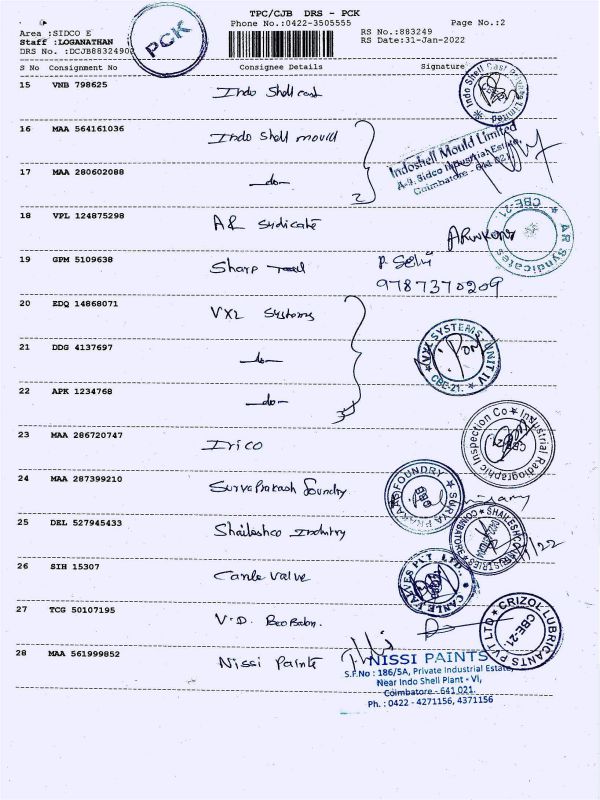 TPC/CJB DRS - PCK
Phone No.:0422-3505555
Page No.:2
Area :SIDCO E
Staff :LOGANATHAN
DRS No. :DCJB88324902
PCK
RS No.:883249
RS Date:31-Jan-2022
S No Consignment No Consignee Details Signature
15 VNB 798625 Indo Shell cast
Indo Shell Cast Private Limited
16 MAA 564161036 Indo Shell mould
Indoshell Mould Limited
A-9, Sidco Industrial Estate,
Coimbatore - 641 021.
17 MAA 280602088 -do-
2
18 VPL 124875298 AR Syndicate
AR Syndicates CBE-21.
19 GPM 5109638 Sharp Tool P. Selvi
9787370209
20 EDQ 14868071 VXL Systems
21 DDG 4137697 -do-
VXL SYSTEMS UNIT IV CBE-21.
22 APK 1234768 -do-
3
23 MAA 286720747 Irico
Industrial Radiographic Inspection Co
24 MAA 287399210 Surya Prakash foundry
SURYA PRAKASH FOUNDRY
25 DEL 527945433 Shaileshco Industry
SHAILESHCO INDUSTRIES COIMBATORE
26 SIH 15307 Canle Valve
CANLE VALVES PVT LTD.
27 TCG 50107195 V.D.
CRIZOL LUBRICANTS PVT LTD CBE-21
28 MAA 561999852 Nissi Paints
NISSI PAINTS
S.F.No : 186/5A, Private Industrial Estate,
Near Indo Shell Plant - VI,
Coimbatore - 641 021.
Ph. : 0422 - 4271156, 4371156